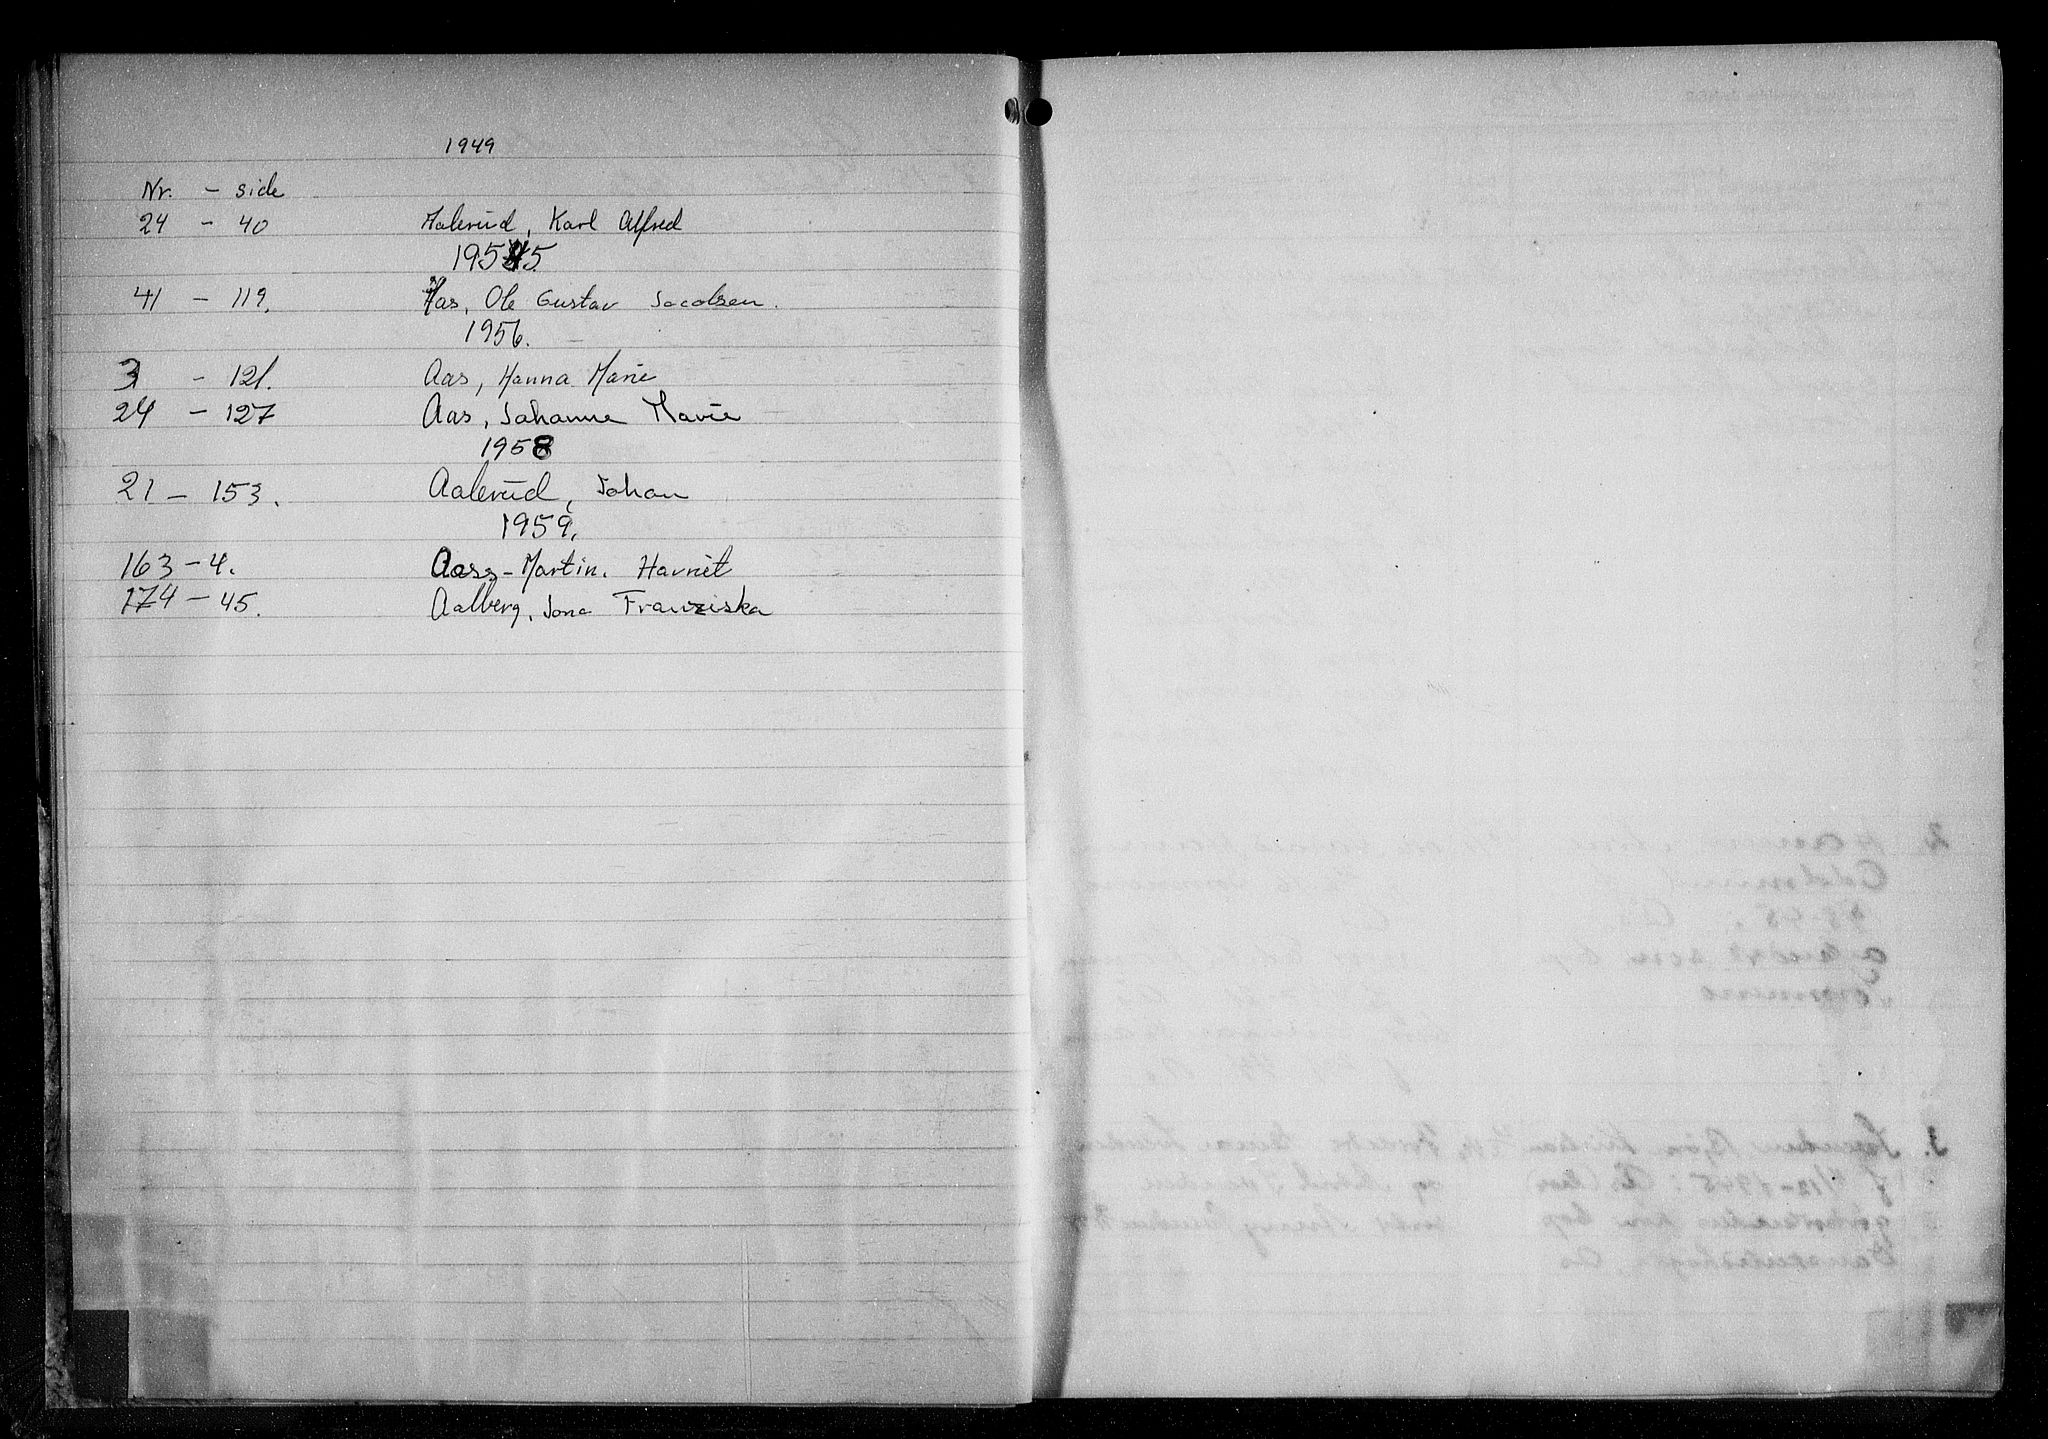 1949
Nr. - side
24 - 40 Aalerud, Karl Alfred
1955.
41 - 119. Aas, Ole Gustav Jacobsen.
1956.
3 - 121. Aas, Hanna Marie
24 - 127 Aas, Johanne Marie
1958
21 - 153. Aalerud, Johan
1959.
163 - 4. Aass - Martin. Harriet
174 - 45. Aalberg, Jona Franziska